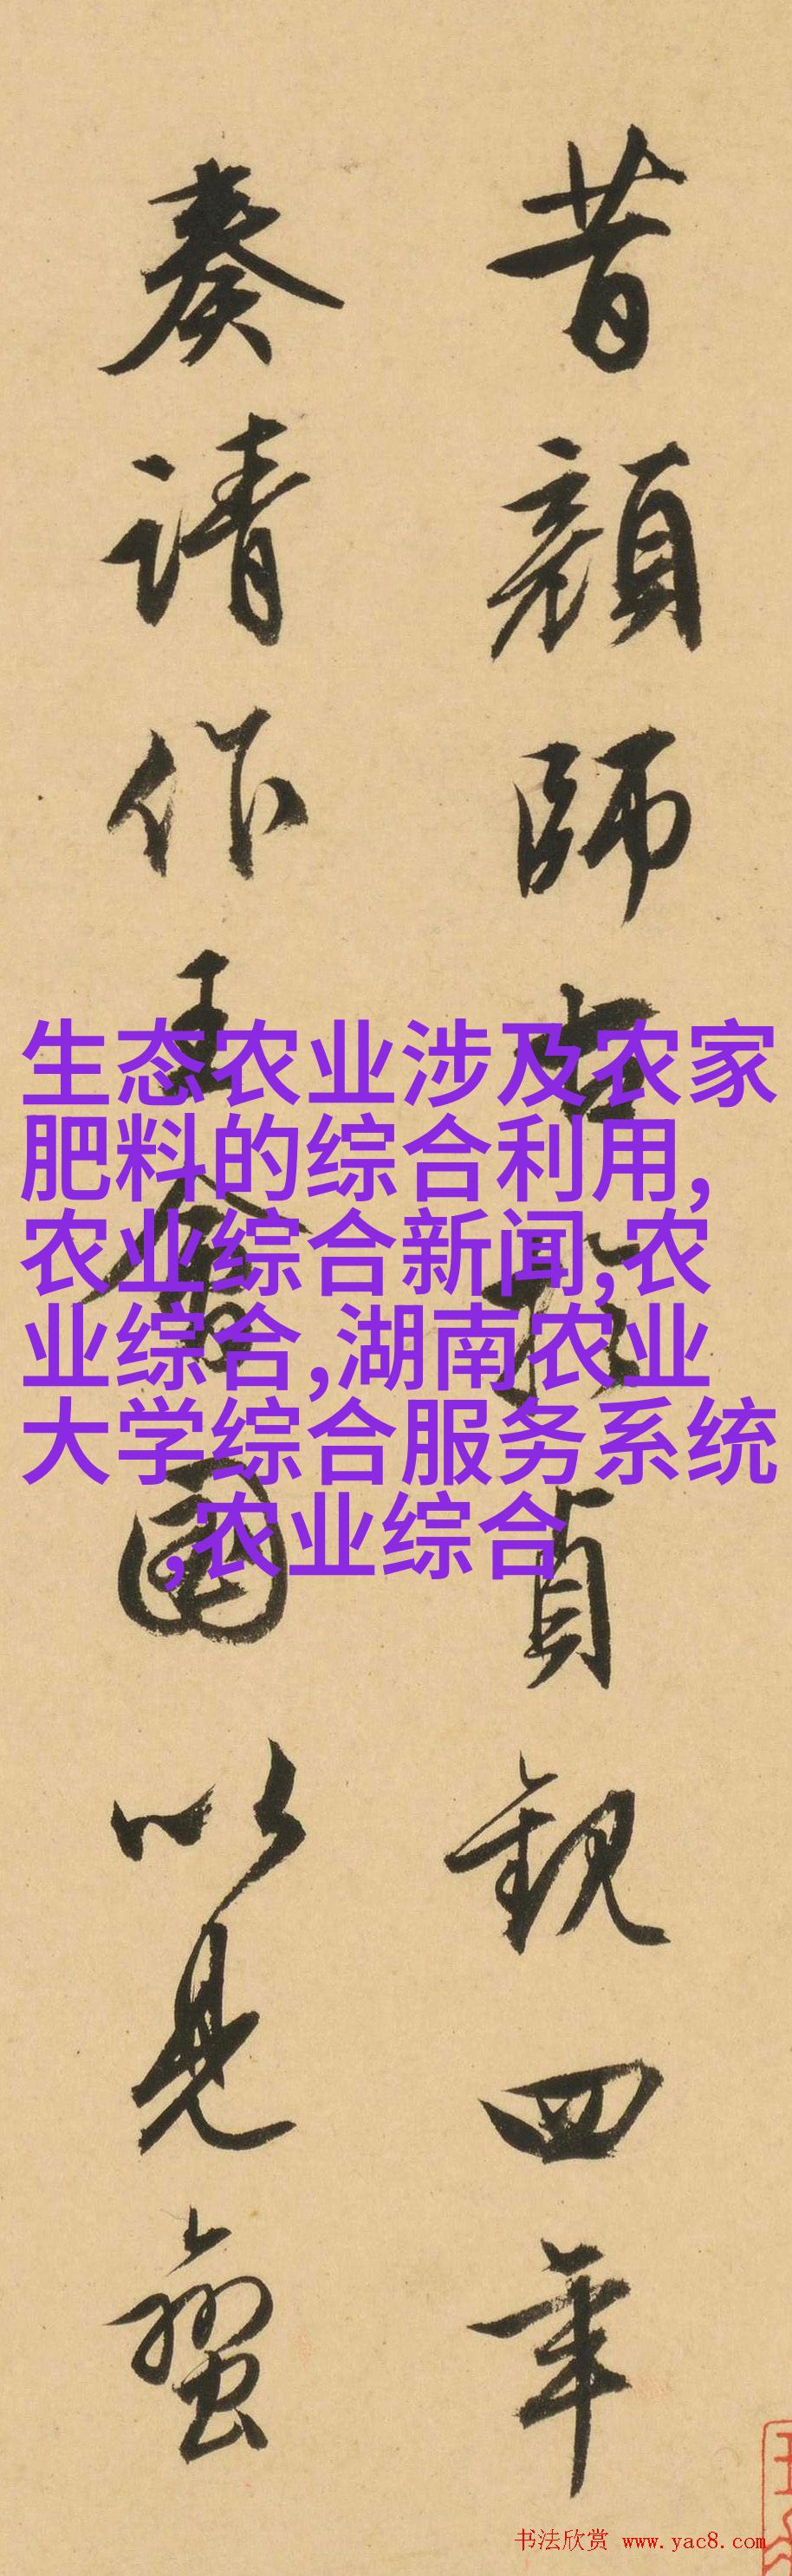 昔顔師古於貞觀四年
奏請作王會圖以見蠻
生态农业涉及农家
肥料的综合利用,
农业综合新闻,农
业综合,湖南农业
大学综合服务系统
,农业综合
书法欣赏 www.yac8.com